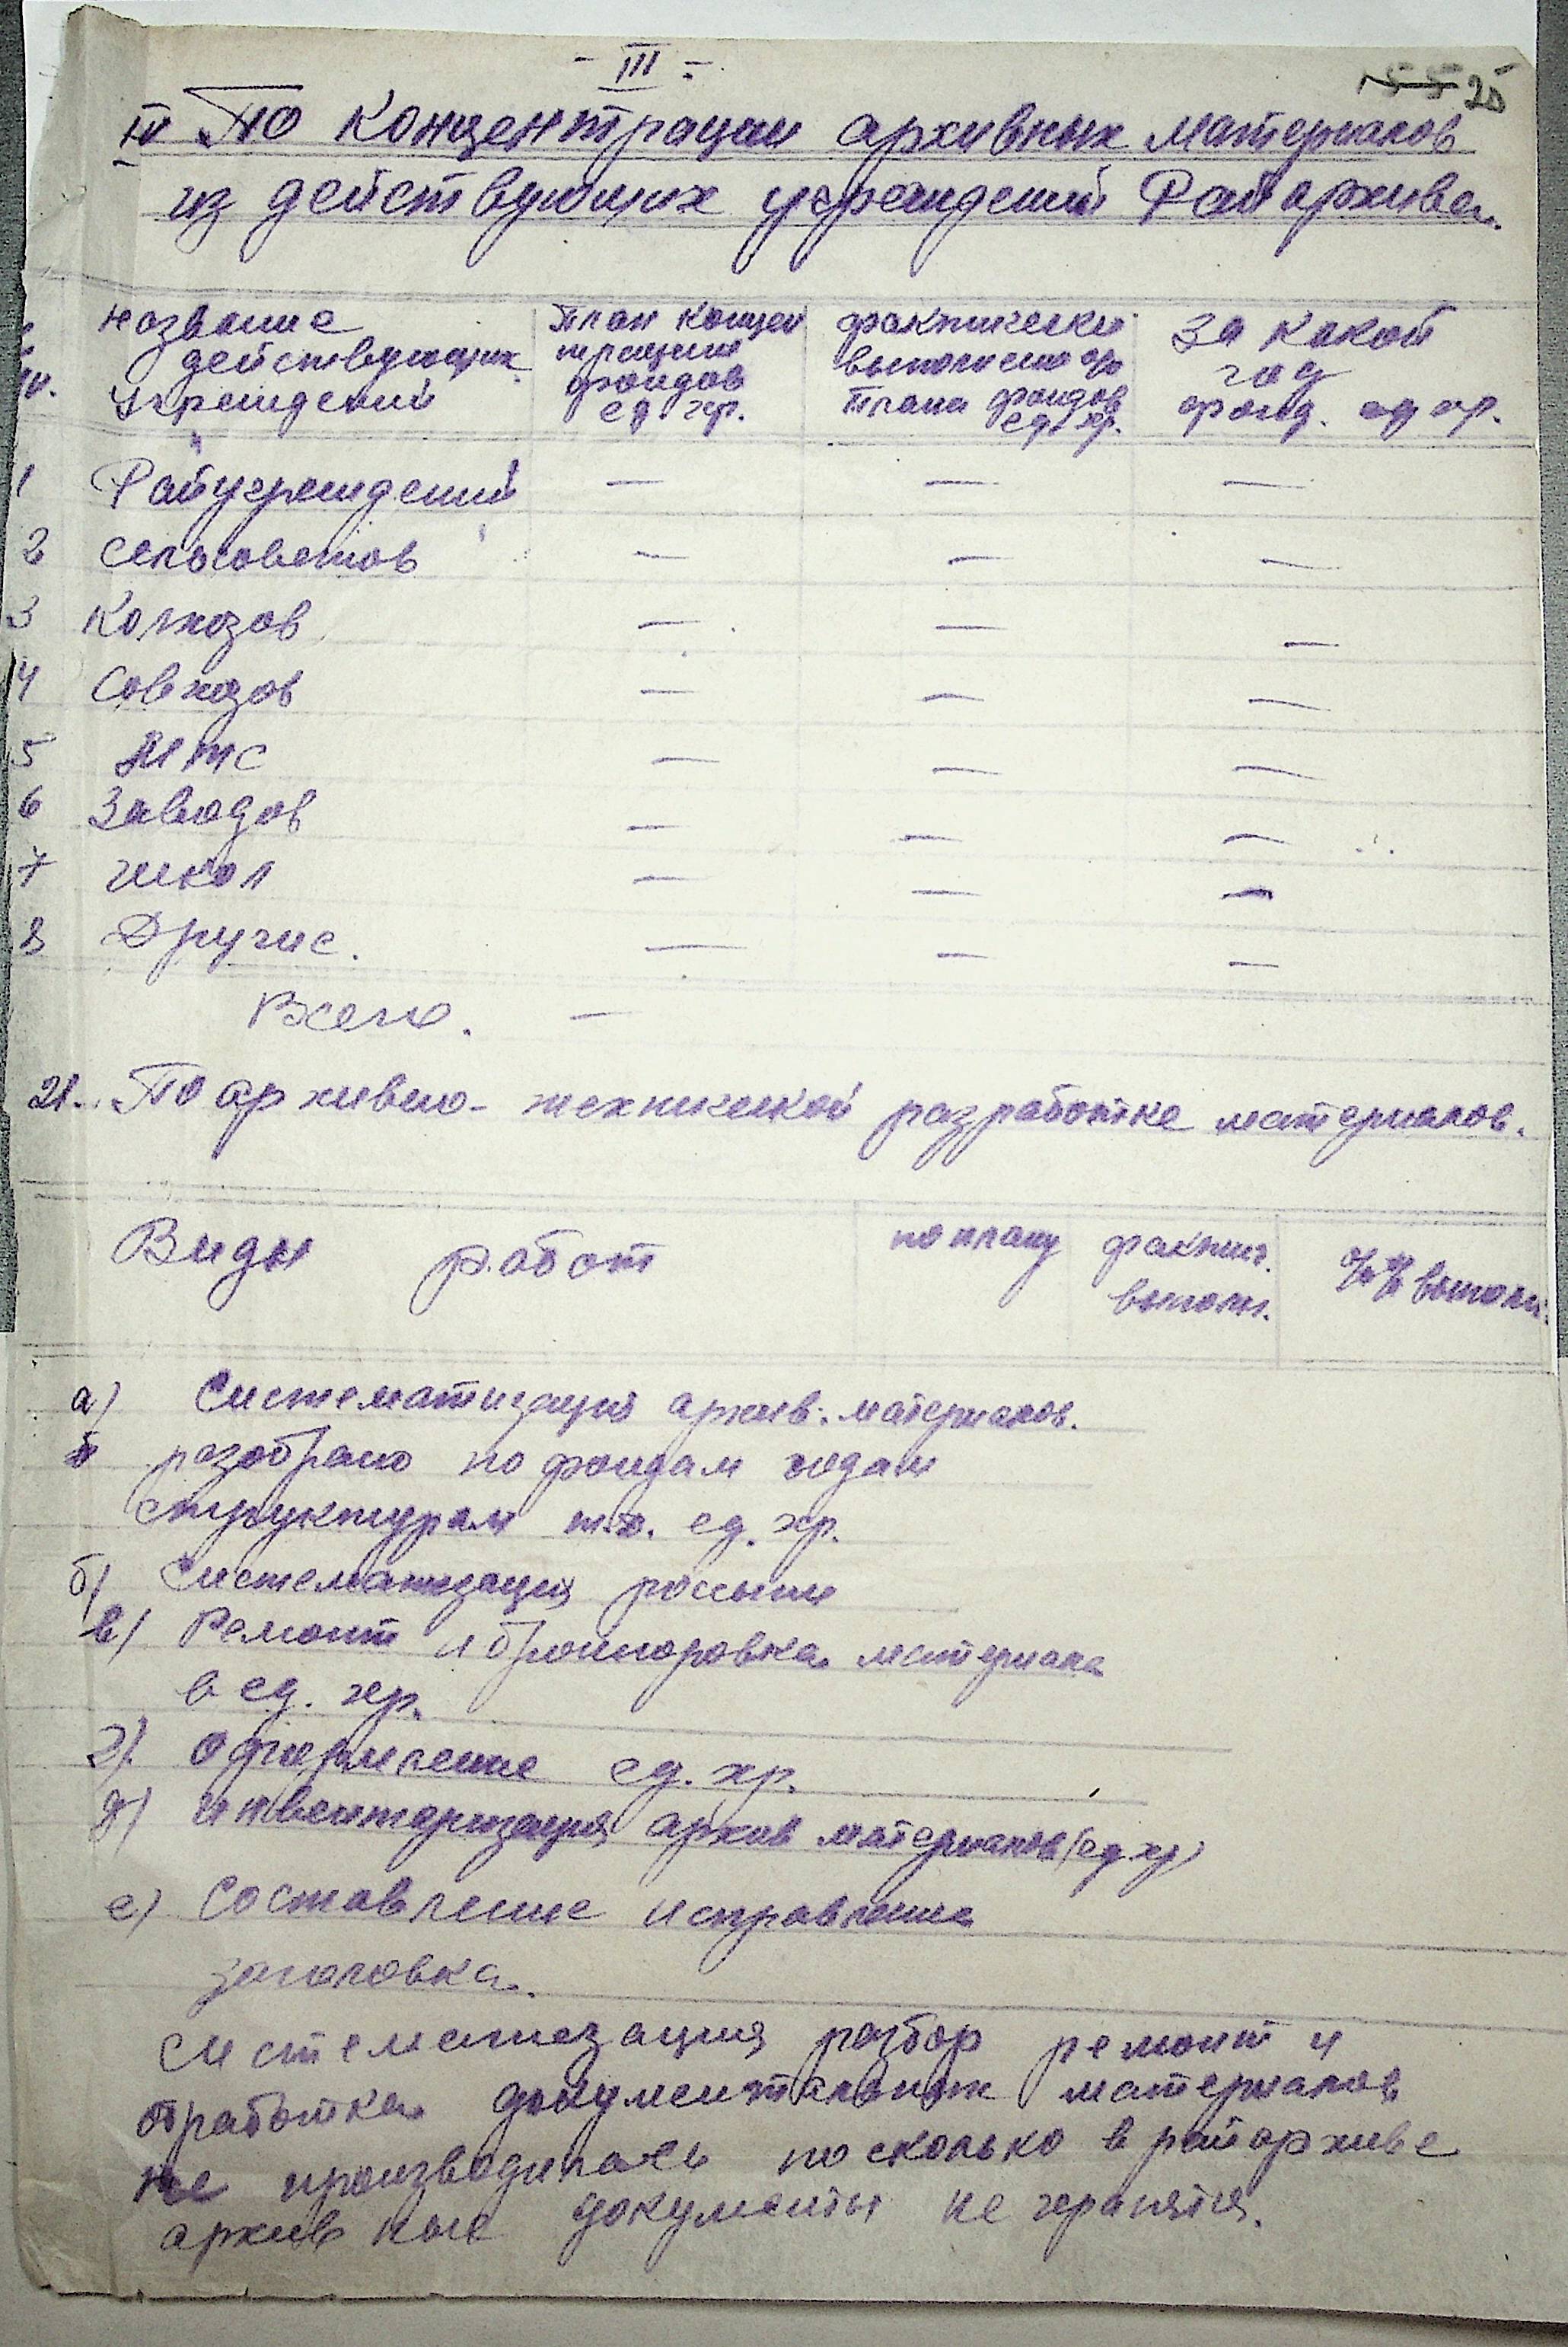 - III -
25
IV По концентрации архивных материалов
из действующих учреждений Райархива.
название действующих учреждений | План концентрации фондов ед хр. | фактически выполнено % плана фондов ед. хр. | За какой год фонд. ед хр.
1 Райучреждений — — —
2 Сельсоветов — — —
3 Колхозов — — —
4 Совхозов — — —
5 МТС — — —
6 Заводов — — —
7 школ — — —
8 Другие. — — —
Всего. —
21. По архивно-технической разработке материалов.
Виды работ | по плану | фактич. выполн. | %% выполн.
а) Систематизация архив. материалов.
разобрано по фондам годам
структурам т.д. ед. хр.
б) Систематизация россыпи
в) Ремонт и брошюровка материала
в ед. хр.
г) Оформление ед. хр.
д) инвентаризация архив материалов (ед хр)
е) Составление исправление
заголовка.
Систематезация разбор ремонт и
обработка документальных материалов
не производилась посколько в райархиве
архивные документы не хранятся.